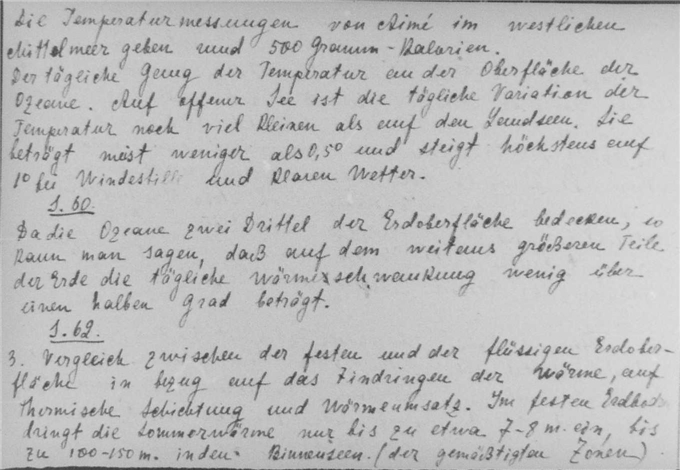 Die Temperaturmessungen von Aimé im westlichen
Mittelmeer geben rund 500 Gramm-Kalorien.
Der tägliche Gang der Temperatur an der Oberfläche der
Ozeane. Auf offener See ist die tägliche Variation der
Temperatur noch viel kleinen als auf den Landseen. Sie
beträgt meist weniger als 0,5° und steigt höchstens auf
1° bei Windestille und klaren Wetter.
S. 60.
Da die Ozeane zwei Drittel der Erdoberfläche bedecken, so
kann man sagen, daß auf dem weitaus größeren Teile
der Erde die tägliche Wärmeschwankung wenig über
einen halben Grad beträgt.
S. 62.
3. Vergleich zwischen der festen und der flüssigen Erdober-
fläche in bezug auf das Eindringen der Wärme, auf
thermische Schichtung und Wärmeumsatz. Im festen Erdboden
dringt die Sommerwärme nur bis zu etwa 7-8 m. ein, bis
zu 100-150 m. in den Binnenseen. (der gemäßigten Zonen)